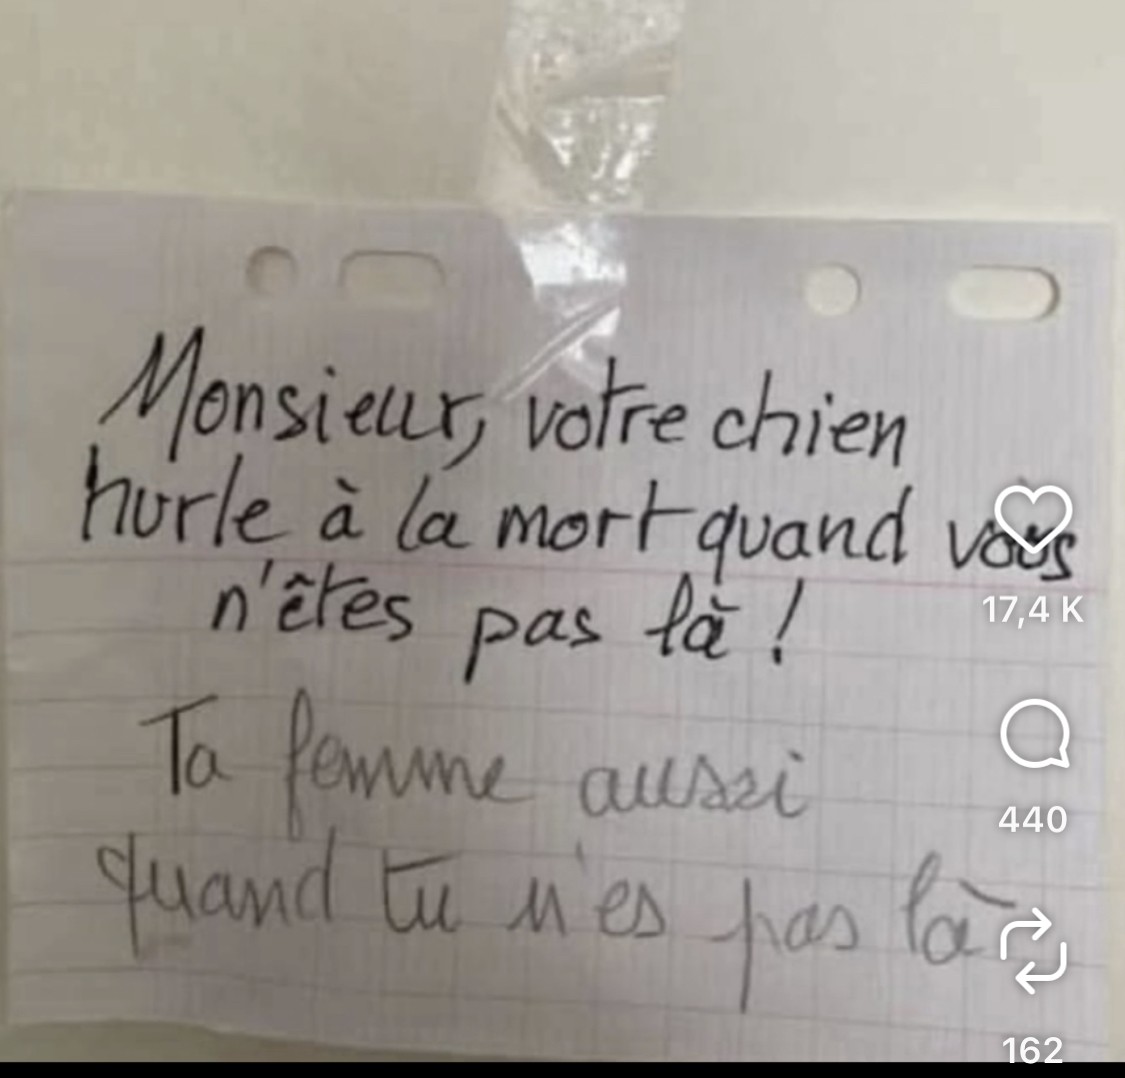 Monsieur, votre chien
hurle à la mort quand vous
n'êtes pas là !
Ta femme aussi
quand tu n'es pas là
17,4 K
440
162